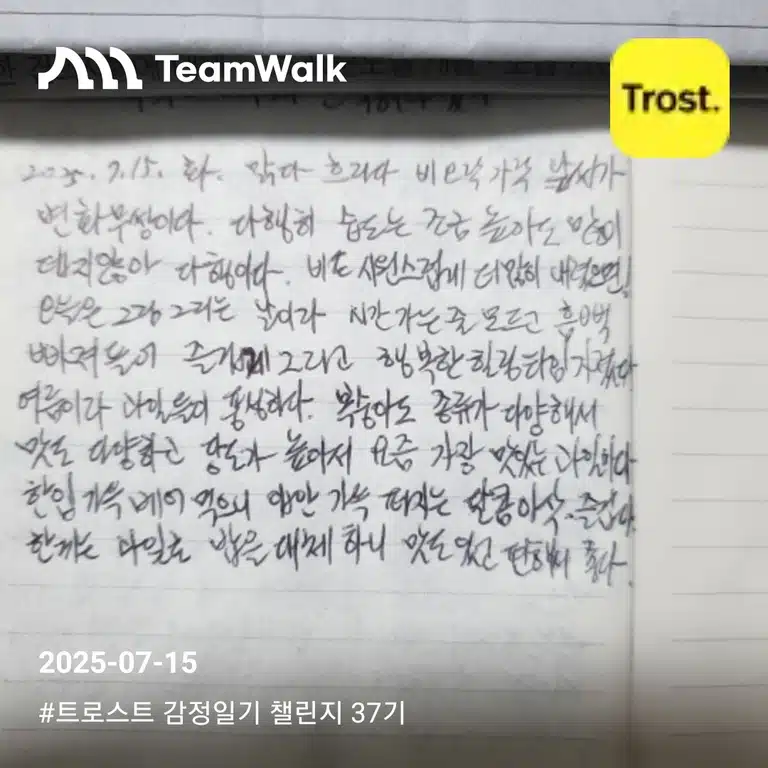 TeamWalk
Trost.
2025. 7. 15. 화. 맑다 흐리다 비오락가락 날씨가
변화무쌍이다. 다행히 습도는 조금 높아도 많이
덥지않아 다행이다. 비도 시원스럽게 더 많이 내렸으면!
오늘은 그림 그리는 날이라 시간 가는 줄 모르고 흠뻑
빠져들어 즐겁게 그리고 행복한 힐링타임 가졌다.
여름이라 과일들이 풍성하다. 복숭아도 종류가 다양해서
맛도 다양하고 당도가 높아서 요즘 가장 맛있는 과일이다
한입 가득 베어 먹으니 입안 가득 퍼지는 달콤아삭. 즐겁다.
한끼는 과일로 밥을 대체 하니 맛도 있고 편해서 좋다.
2025-07-15
#트로스트 감정일기 챌린지 37기